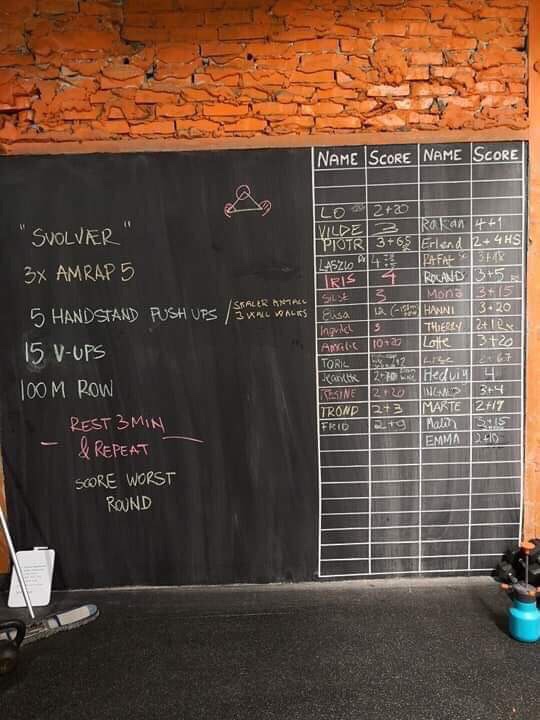 NAME SCORE NAME SCORE
"SVOLVÆR"
3x AMRAP 5
5 HANDSTAND PUSH UPS / SKALER ANTALL
3 WALL WALKS
15 V-UPS
100 M ROW
REST 3 MIN
& REPEAT
SCORE WORST
ROUND
LO 2+20
VILDE 3 Rakan 4+1
PIOTR 3+65 Erlend 2+4HS
LASZLO 4 RAFAT
IRIS 4 ROLAND 3+5
SILJE 3 Mona 3+15
Elisa HANNI 3+20
Ingvild 3 THIERRY
Amalie 10+20 Lotte 3+20
TORIL LISE 2+67
Jeanette Hedvig 4
RESINE 2+20 3+4
TROND 2+3 MARTE 2+17
FRID 2+9 Malin 3+15
EMMA 2+10